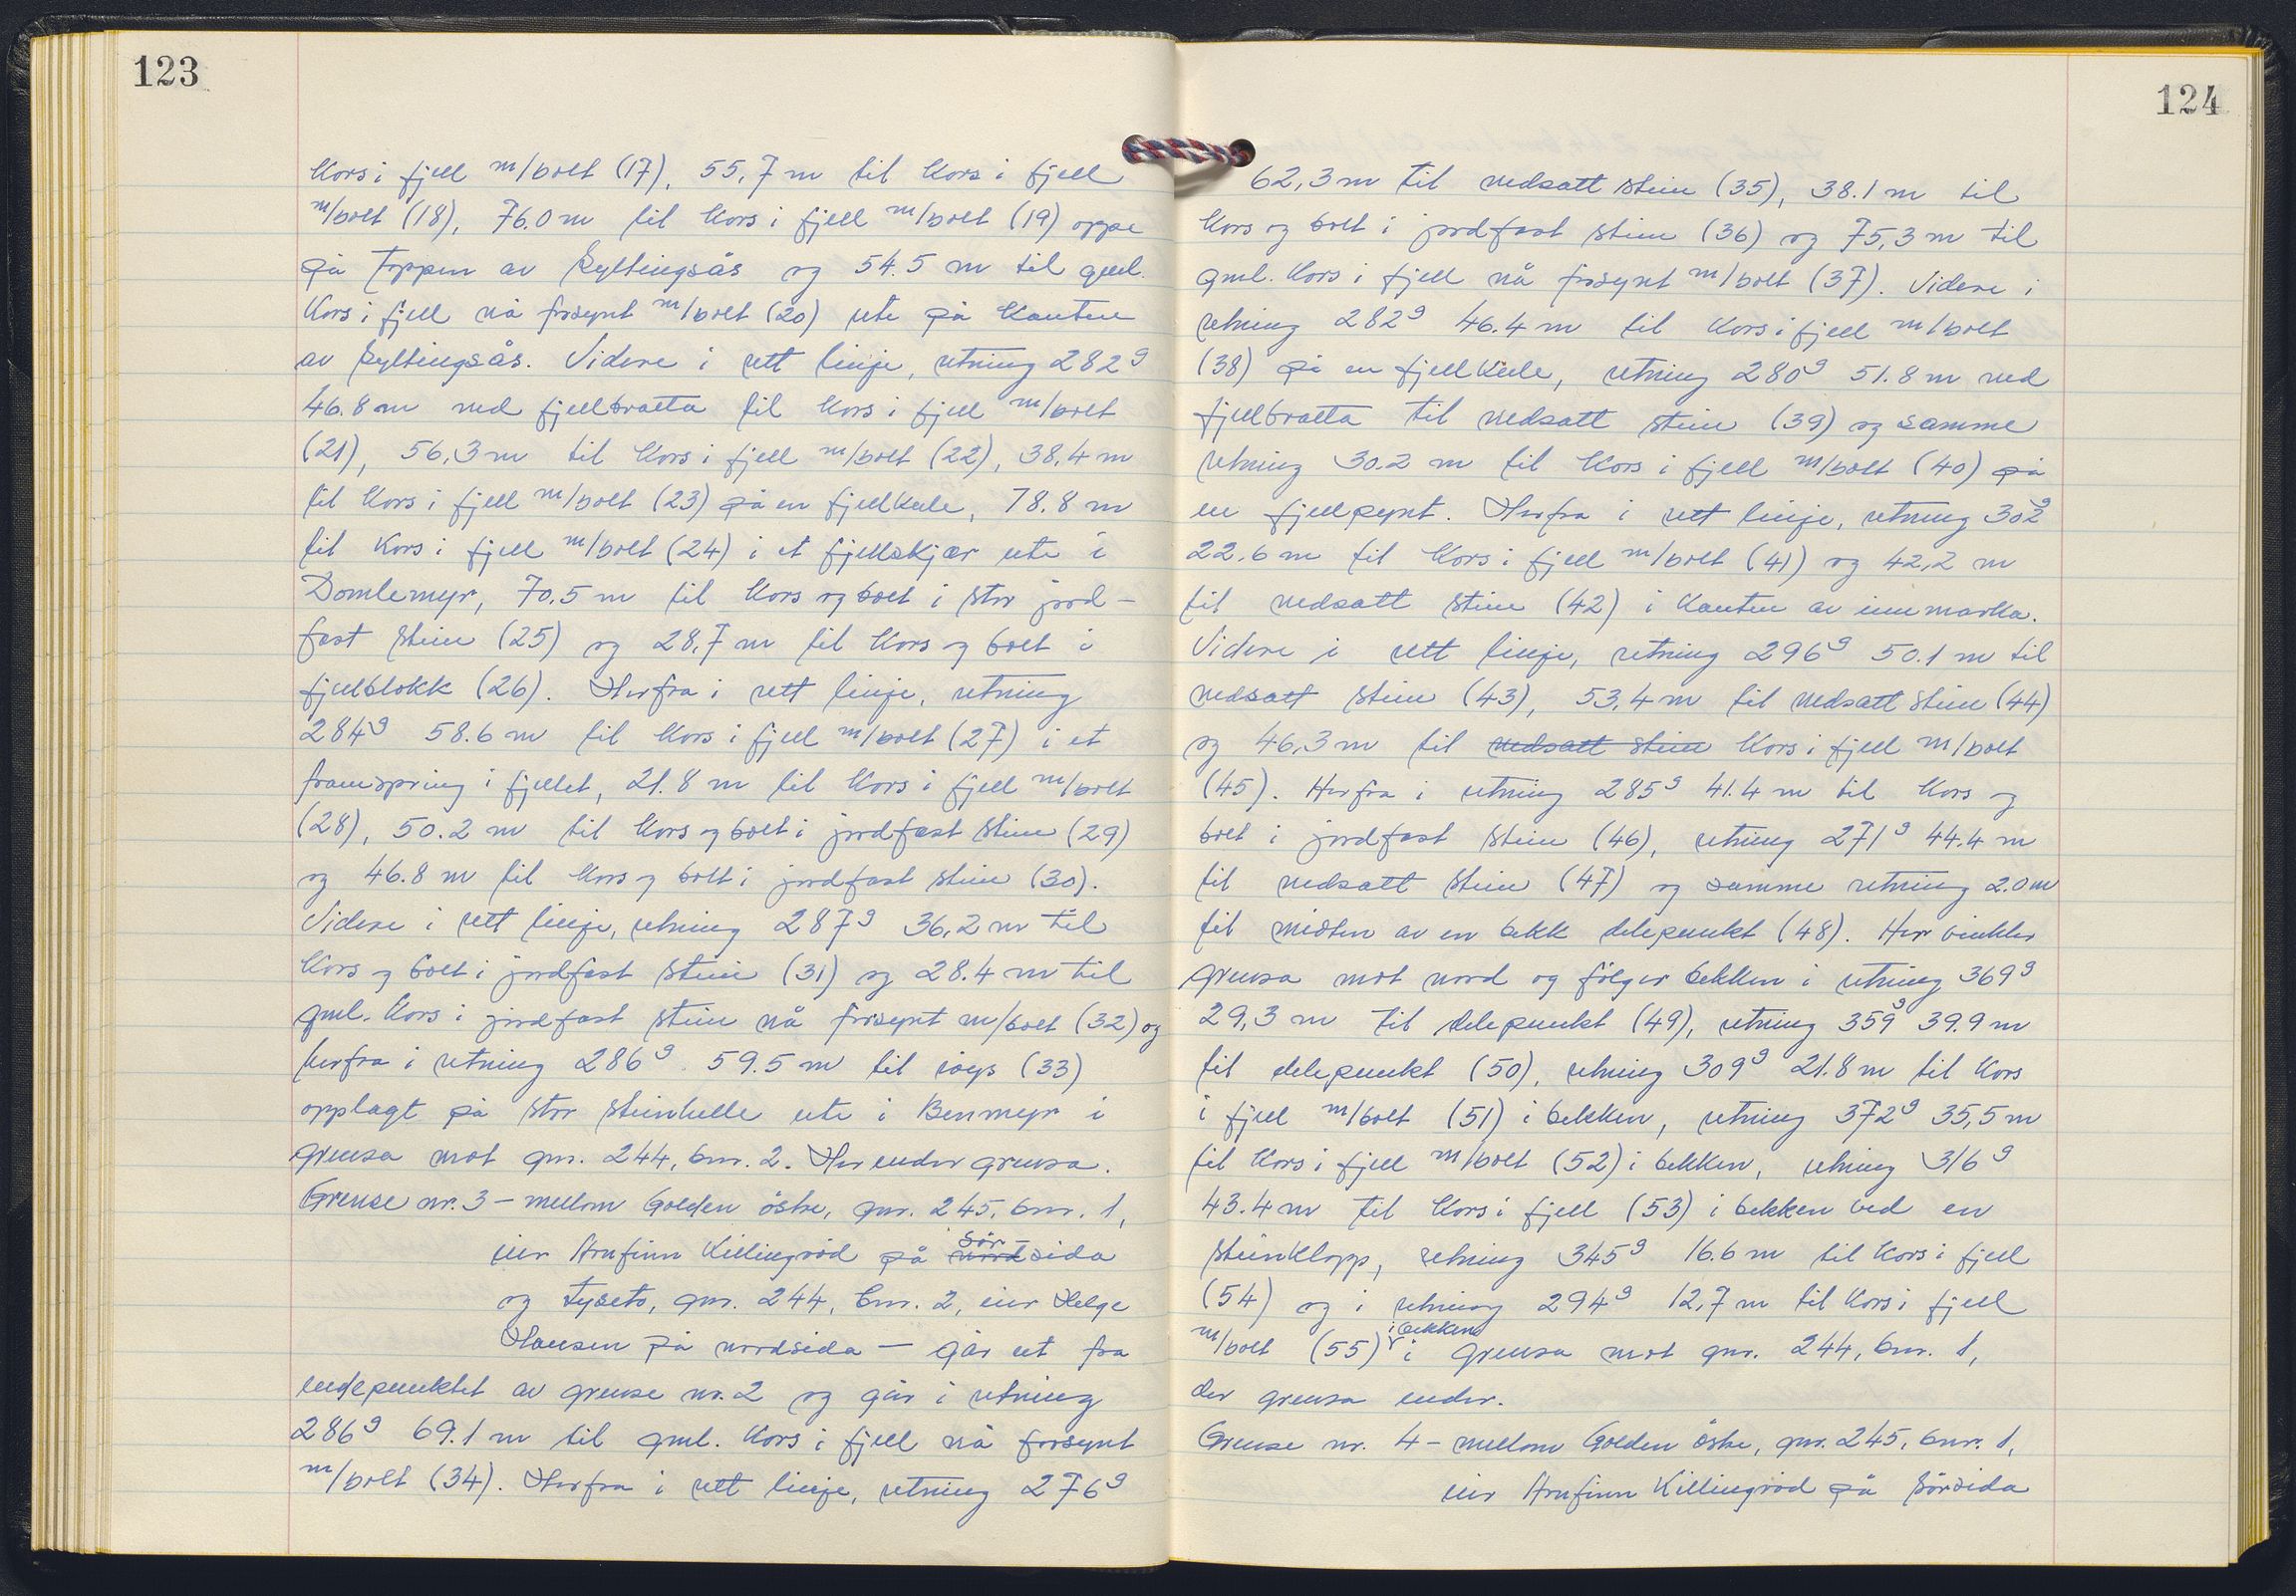 123
kors i fjell m/bolt (17), 55,7 m til kors i fjell
m/bolt (18), 76.0 m til kors i fjell m/bolt (19) oppe
på toppen av Kyllingsås og 54.5 m til gml.
kors i fjell nå forsynt m/bolt (20) ute på kanten
av Kyllingsås. Videre i rett linje, retning 282g
46.8 m ned fjellbratta til kors i fjell m/bolt
(21), 56,3 m til kors i fjell m/bolt (22), 38,4 m
til kors i fjell m/bolt (23) på en fjellkule, 78.8 m
til kors i fjell m/bolt (24) i et fjellskjær ute i
Domlemyr, 70.5 m til kors og bolt i stor jord-
fast stein (25) og 28,7 m til kors og bolt i
fjellblokk (26). Herfra i rett linje, retning
284g 58.6 m til kors i fjell m/bolt (27) i et
framspring i fjellet, 21.8 m til kors i fjell m/bolt
(28), 50.2 m til kors og bolt i jordfast stein (29)
og 46.8 m til kors og bolt i jordfast stein (30).
Videre i rett linje, retning 287g 36,2 m til
kors og bolt i jordfast stein (31) og 28.4 m til
gml. kors i jordfast stein nå forsynt m/bolt (32) og
herfra i retning 286g 59.5 m til røys (33)
opplagt på stor steinhelle ute i Benmyr i
grensa mot gnr. 244, bnr. 2. Her ender grensa.
Grense nr. 3 – mellom Golden östre, gnr. 245, bnr. 1,
eier Arnfinn Killingrød på nord sør-sida
og Tyseto, gnr. 244, bnr. 2, eier Helge
Hansen på nordsida – går ut fra
endepunktet av grense nr. 2 og går i retning
286g 69.1 m til gml. kors i fjell nå forsynt
m/bolt (34). Herfra i rett linje, retning 276g
124
62,3 m til nedsatt stein (35), 38.1 m til
kors og bolt i jordfast stein (36) og 75,3 m til
gml. kors i fjell nå forsynt m/bolt (37). Videre i
retning 282g 46.4 m til kors i fjell m/bolt
(38) på en fjellkule, retning 280g 51.8 m ned
fjellbratta til nedsatt stein (39) og samme
retning 30.2 m til kors i fjell m/bolt (40) på
en fjellpynt. Herfra i rett linje, retning 302g
22.6 m til kors i fjell m/bolt (41) og 42,2 m
til nedsatt stein (42) i kanten av innmarka.
Videre i rett linje, retning 296g 50.1 m til
nedsatt stein (43), 53,4 m til nedsatt stein (44)
og 46,3 m til nedsatt stein kors i fjell m/bolt
(45). Herfra i retning 285g 41.4 m til kors og
bolt i jordfast stein (46), retning 271g 44.4 m
til nedsatt stein (47) og samme retning 2.0 m
til midten av en bekk delepunkt (48). Her vinkler
grensa mot nord og følger bekken i retning 369g
29,3 m til delepunkt (49), retning 359g 39.9 m
til delepunkt (50), retning 309g 21.8 m til kors
i fjell m/bolt (51) i bekken, retning 372g 35,5 m
til kors i fjell m/bolt (52) i bekken, retning 316g
43.4 m til kors i fjell (53) i bekken ved en
steinklopp, retning 345g 16.6 m til kors i fjell
(54) og i retning 294g 12,7 m til kors i fjell
m/bolt (55) i bekken i grensa mot gnr. 244, bnr. 1,
der grensa ender.
Grense nr. 4 – mellom Golden östre, gnr. 245, bnr. 1,
eier Arnfinn Killingrød på sørsida